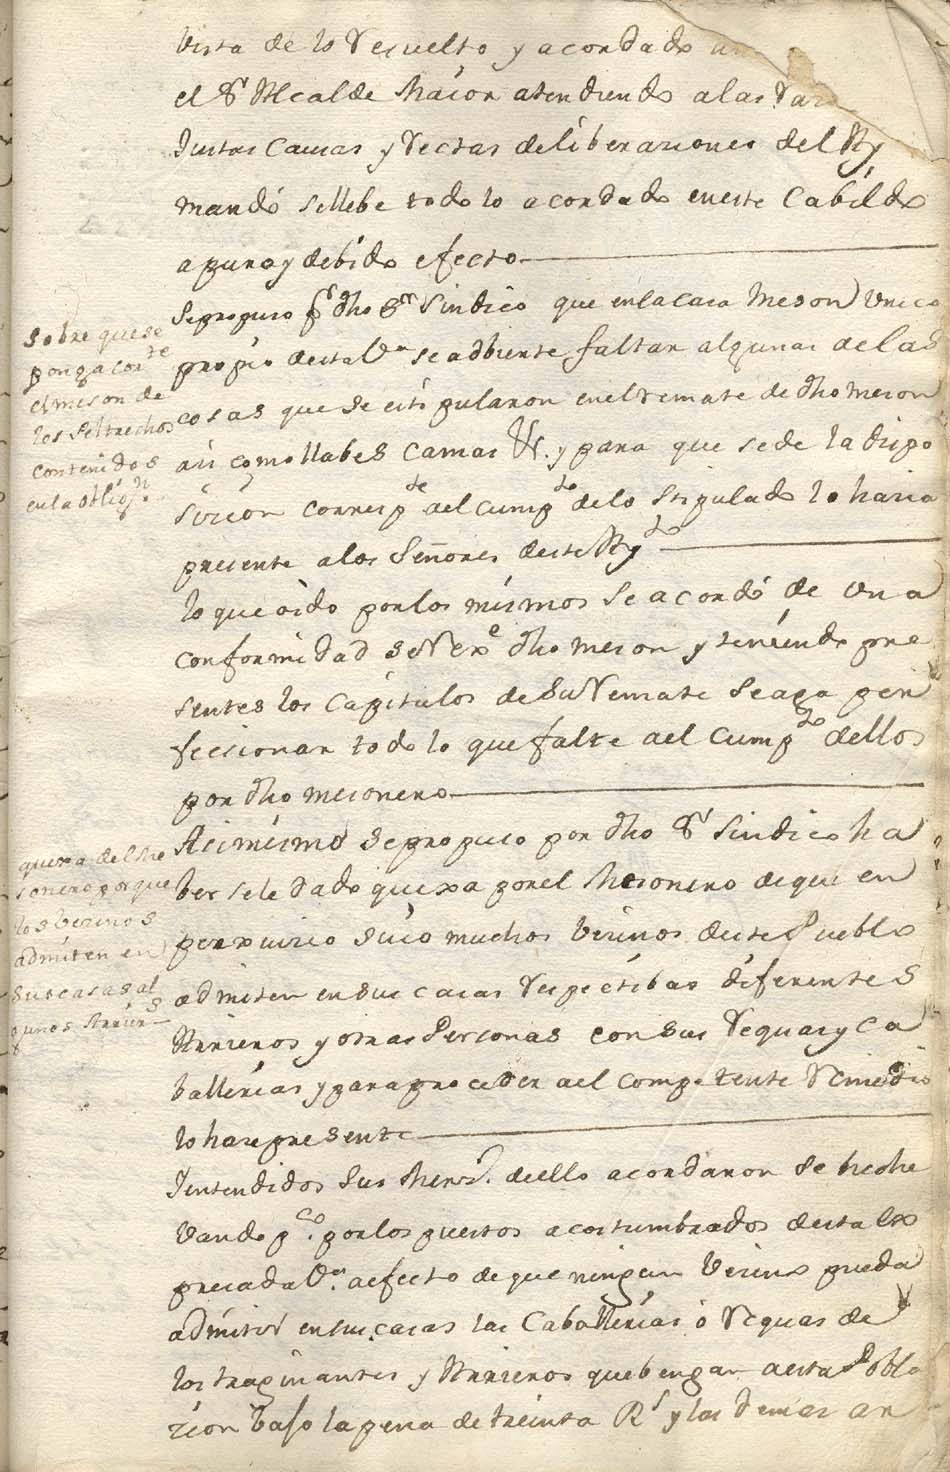 Vista de lo Resuelto y acordado
el Sr Alcalde Maior atendiendo a las
Justas Causas y Rectas deliberaziones del Ay
mandó se llebe todo lo acordado en este Cabildo
a puro y debido efecto
Se propuso pr dho Sr Sindico que en la casa Meson Unico
propio desta Va se adbierte faltan algunas de las
cosas que se estipularon en el remate de dho meson
asi como llabes camas Ut. y para que se de la dispo
sizion corresp.te al cump.to de lo stipulado lo haria
presente a los Señores deste Ay.to
lo que oido por los mismos se acordó de una
conformidad se Rexe dho meson y teniendo pre
sentes los Capitulos de su Remate se aga per
feccionar todo lo que falte al cump.to dellos
por dho mesonero
Asimismo se propuso por dho Sr Sindico ha
ber sele dado quexa por el Mesonero de que en
perxuizio suio muchos Vezinos deste Pueblo
admiten en sus casas respectibas diferentes
Arrieros y otras Personas con sus Yeguas y Ca
ballerias y para proceder al competente Remedio
lo haze presente
Jentendidos Sus Merzs. dello acordaron se heche
Vando p.co por los puestos acostumbrados desta ex
presada Va. a efecto de que ningun Vezino pueda
admitir en sus casas las Caballerias ó Yeguas de
los traginantes y Arrieros que bengan a esta Pobla
zion baso la pena de treinta Rs y las demas ar
sobre que se
ponga corte
el meson de
los Peltrechos
contenidos
en la oblign.
quexa del Me
sonero porque
los vezinos
admiten en
sus casas al
gunos Arrieros